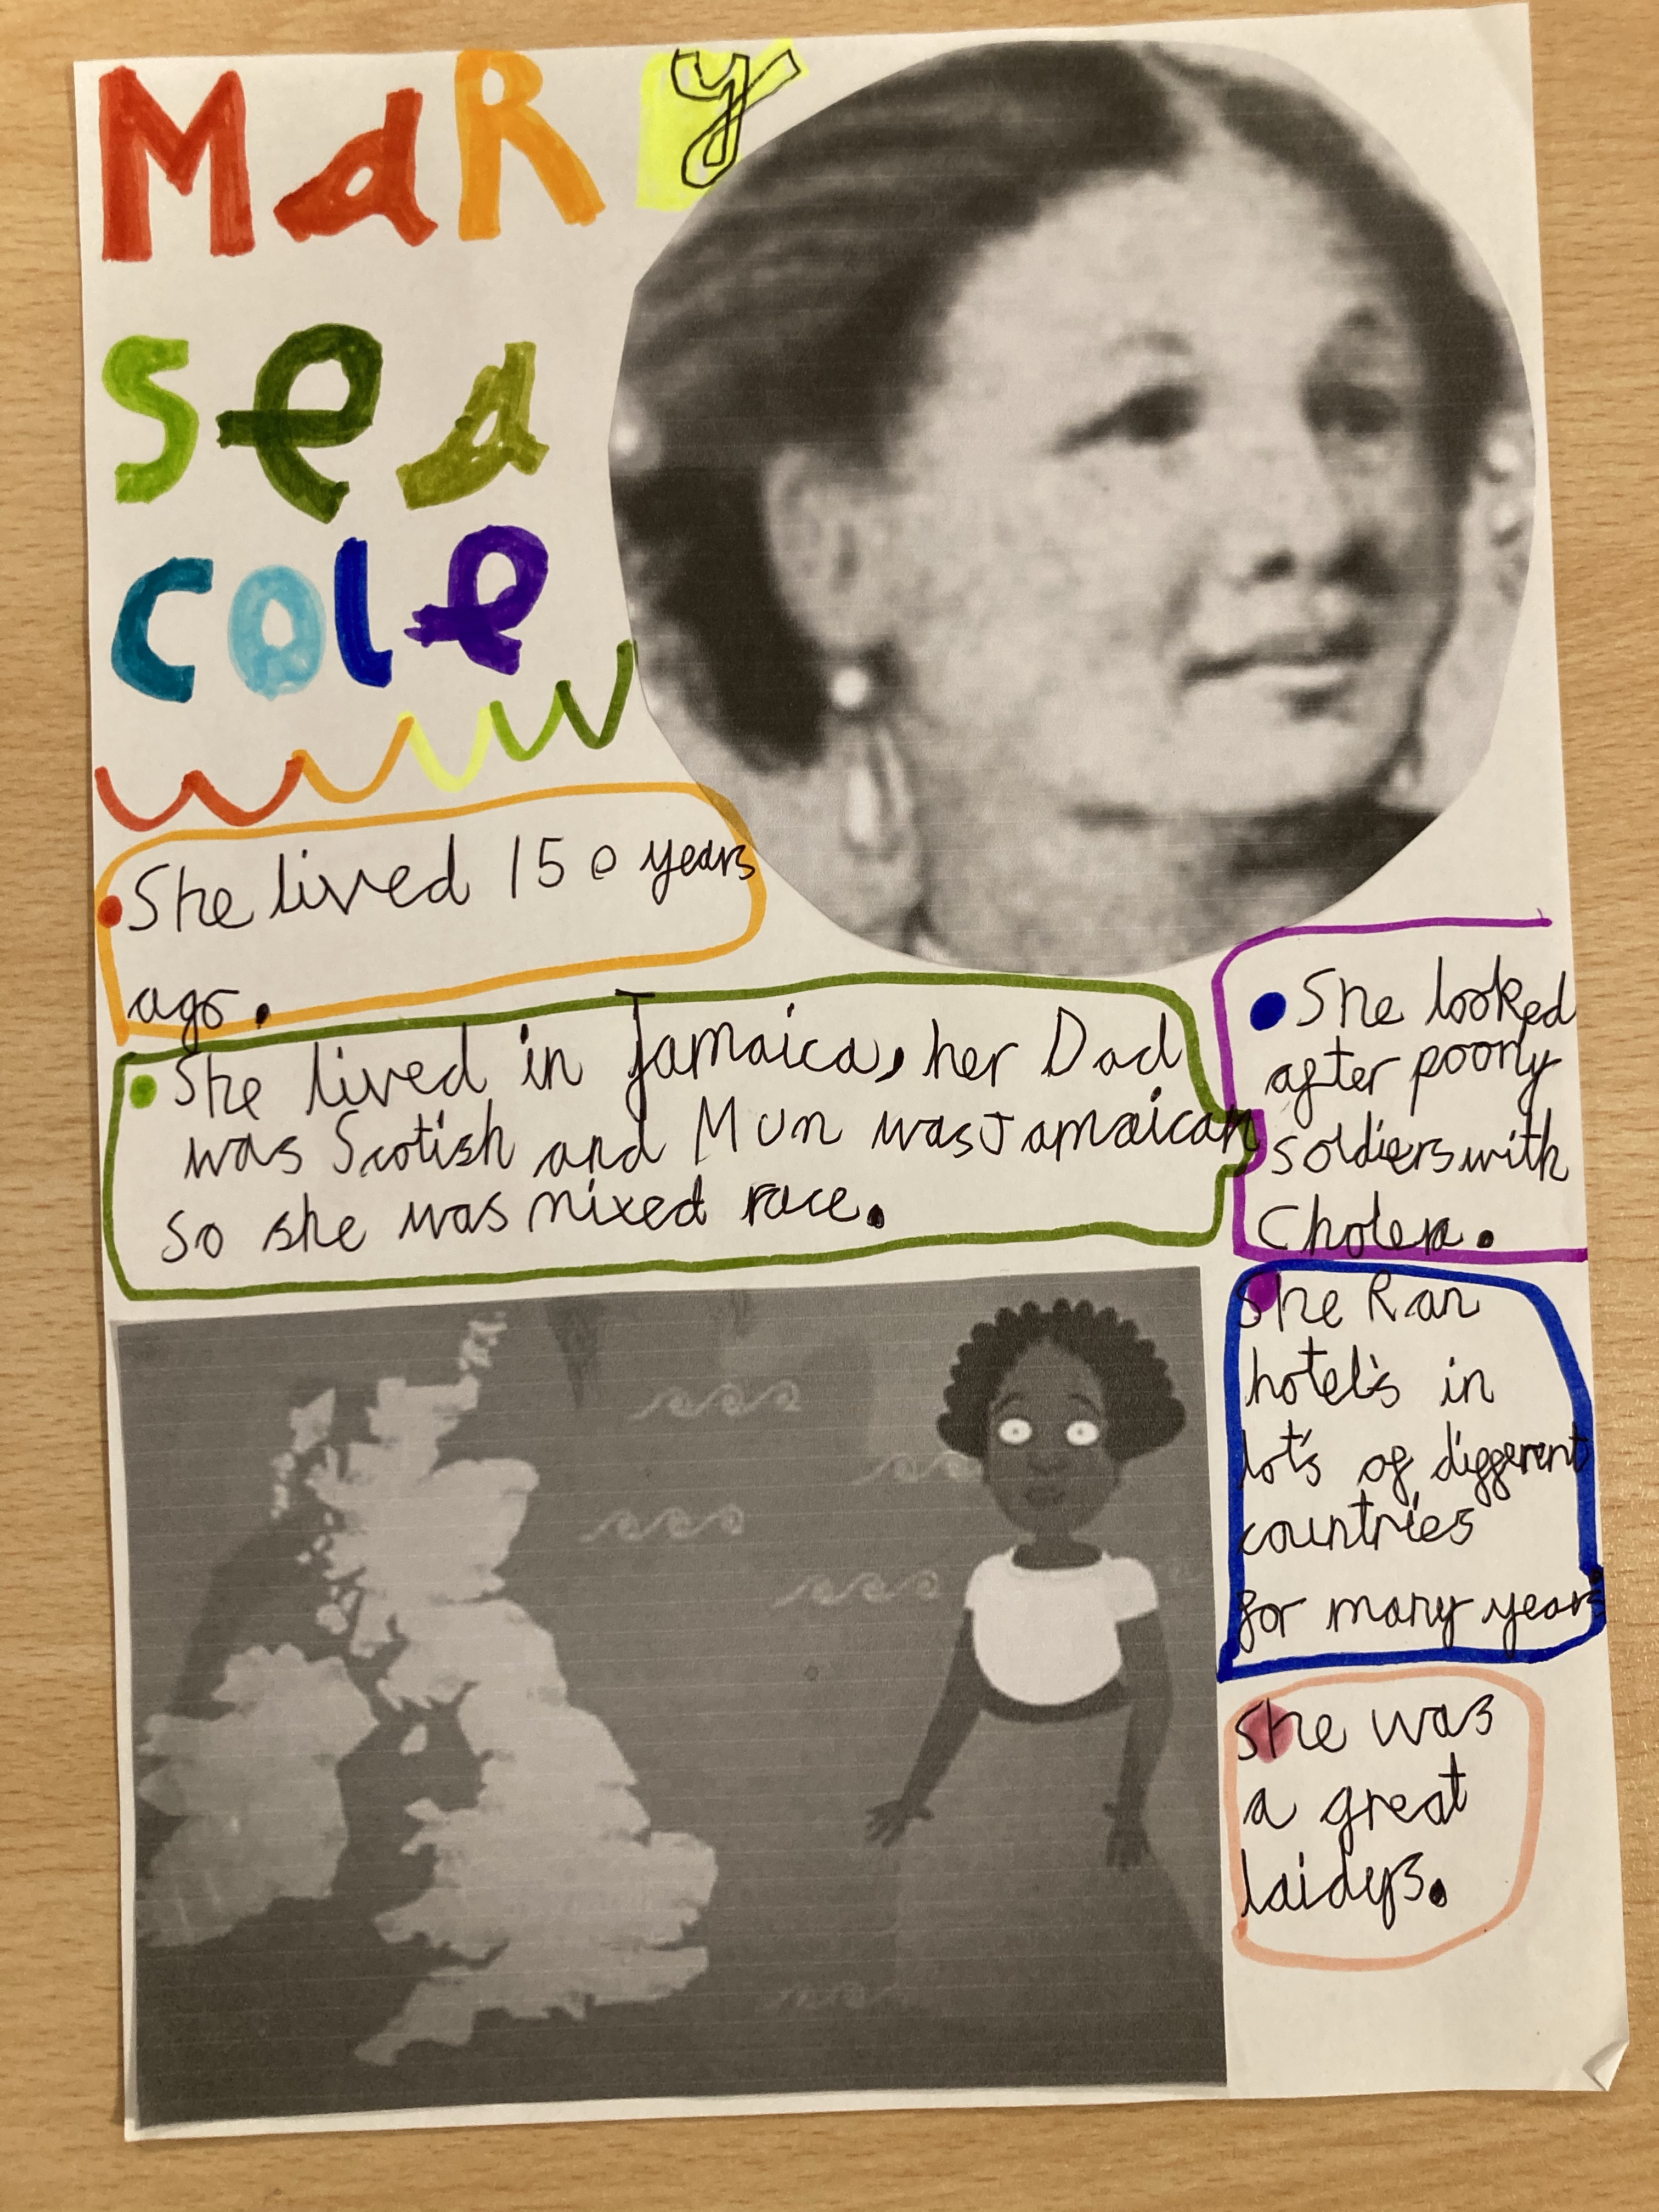 MaRy
sea
cole
She lived 150 years
ago.
She lived in Jamaica, her Dad
was Scotish and Mun was Jamaican
so she was mixed race.
She looked
after poorly
soldiers with
Cholera.
She Ran
hotel's in
lot's of different
countries
for many years.
She was
a great
laidys.